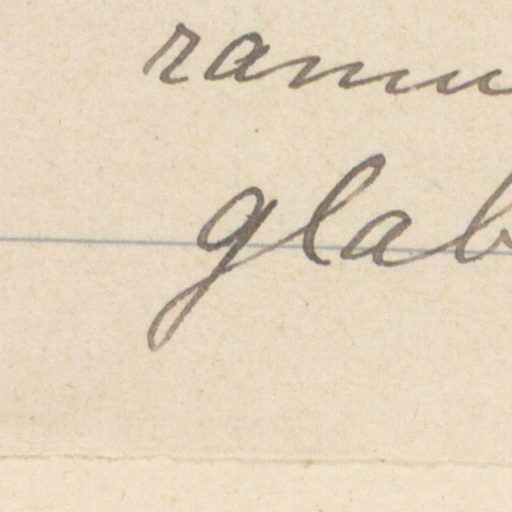 ramu
glab